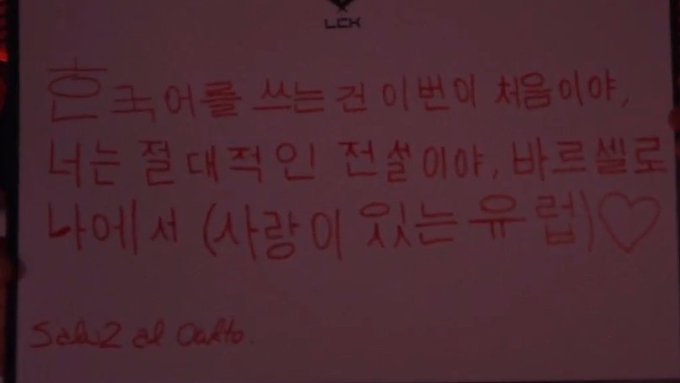 LCK
한국어를 쓰는건 이번이 처음이야,
너는 절대적인 전설이야, 바르셀로
나에서 (사랑이 있는 유럽)♡
al